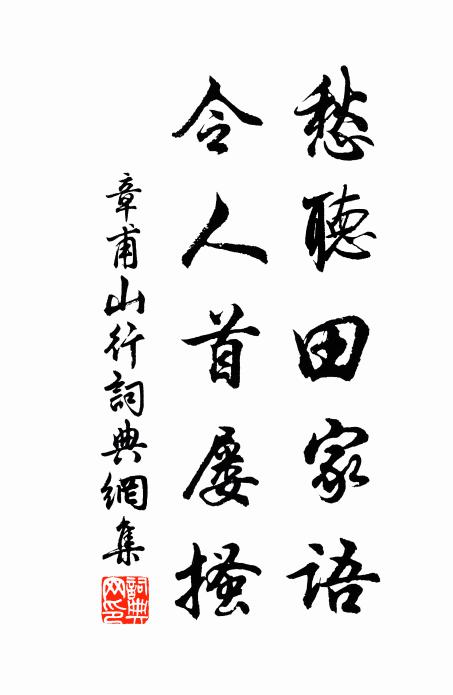 愁聽田家語
令人首屢搔
章甫山行詞典網集
詞典網印